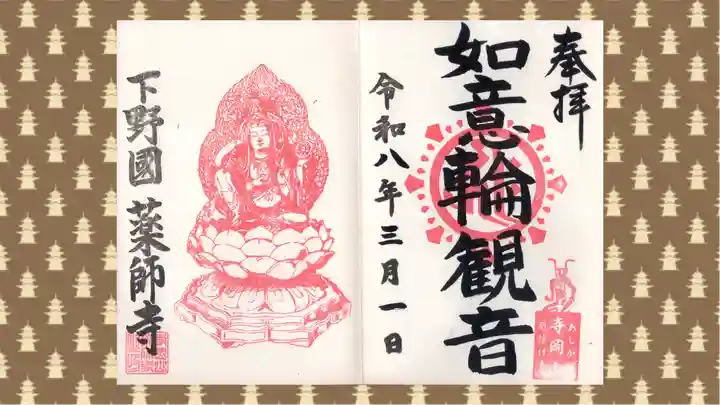 奉拝
如意輪観音
あしかが
寺岡
令和八年三月一日
下野國 薬師寺